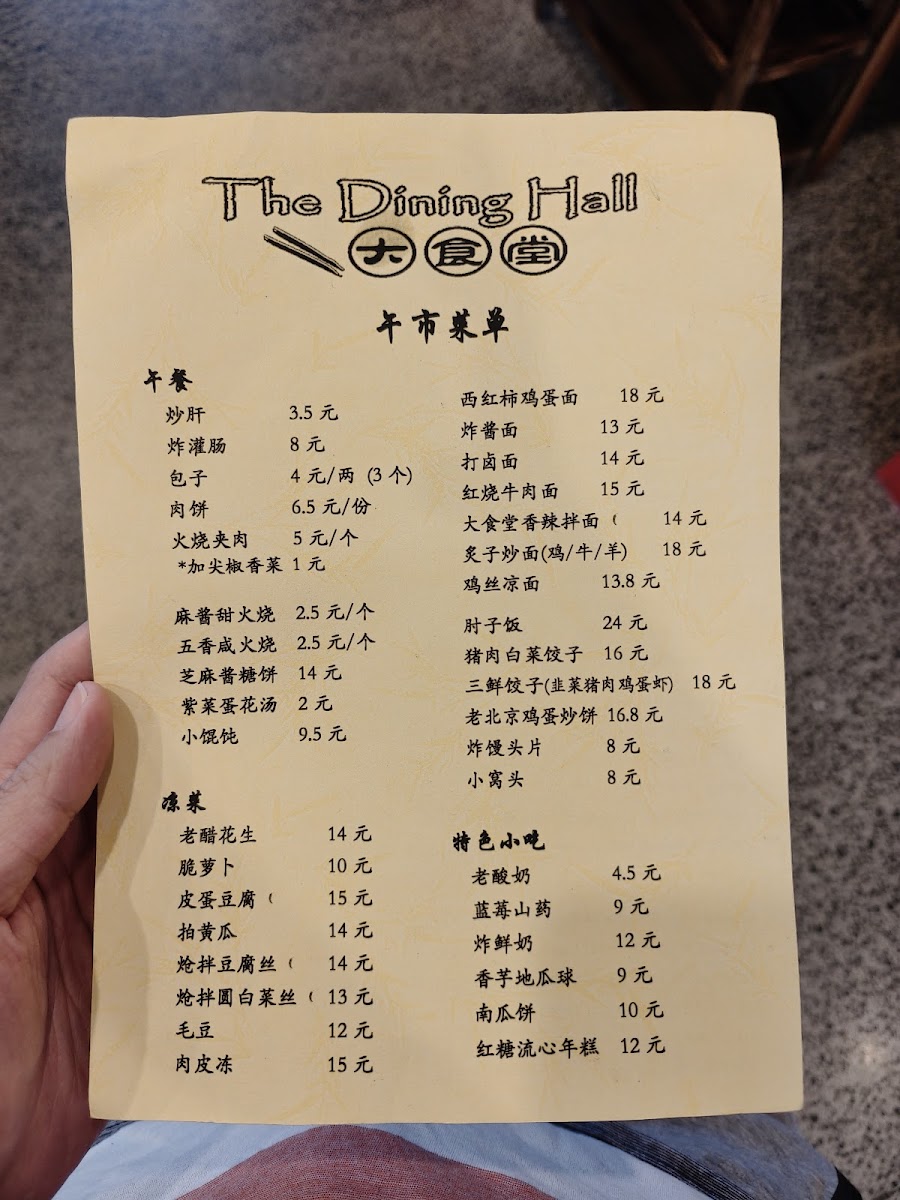 The Dining Hall
大食堂
午市菜单
午餐
炒肝 3.5 元
炸灌肠 8 元
包子 4 元/两 (3 个)
肉饼 6.5 元/份
火烧夹肉 5 元/个
*加尖椒香菜 1 元
麻酱甜火烧 2.5 元/个
五香咸火烧 2.5 元/个
芝麻酱糖饼 14 元
紫菜蛋花汤 2 元
小馄饨 9.5 元
西红柿鸡蛋面 18 元
炸酱面 13 元
打卤面 14 元
红烧牛肉面 15 元
大食堂香辣拌面 ( 14 元
炙子炒面(鸡/牛/羊) 18 元
鸡丝凉面 13.8 元
肘子饭 24 元
猪肉白菜饺子 16 元
三鲜饺子(韭菜猪肉鸡蛋虾) 18 元
老北京鸡蛋炒饼 16.8 元
炸馒头片 8 元
小窝头 8 元
凉菜
老醋花生 14 元
脆萝卜 10 元
皮蛋豆腐 ( 15 元
拍黄瓜 14 元
炝拌豆腐丝 ( 14 元
炝拌圆白菜丝 ( 13 元
毛豆 12 元
肉皮冻 15 元
特色小吃
老酸奶 4.5 元
蓝莓山药 9 元
炸鲜奶 12 元
香芋地瓜球 9 元
南瓜饼 10 元
红糖流心年糕 12 元